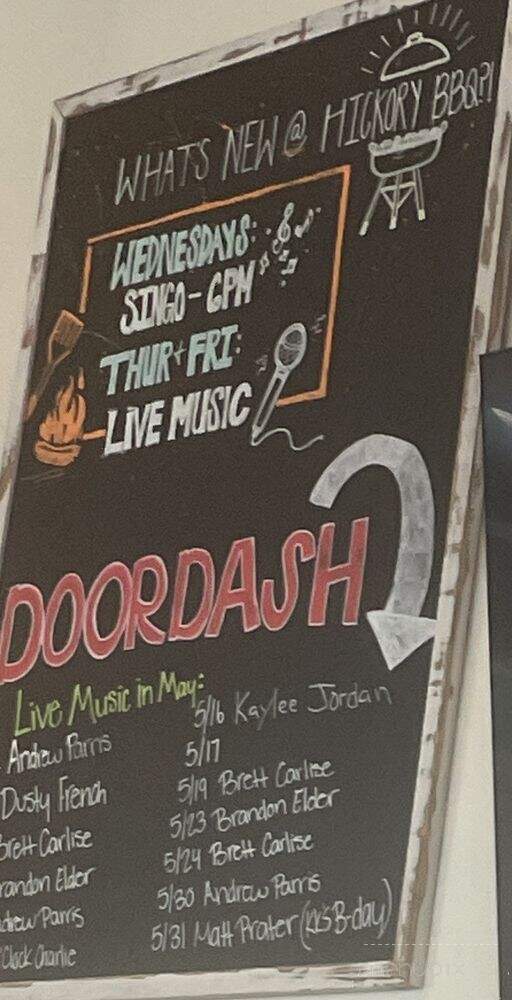 WHAT'S NEW @ HICKORY BBQ?!
WEDNESDAYS:
SINGO - 6PM
THUR + FRI:
LIVE MUSIC
DOORDASH
Live Music in May:
Andrew Parris
Dusty French
Brett Carlise
randon Elder
drew Parris
Clock Charlie
5/16 Kaylee Jordan
5/17
5/19 Brett Carlise
5/23 Brandon Elder
5/24 Brett Carlise
5/30 Andrew Parris
5/31 Matt Prater (KK's B-day)